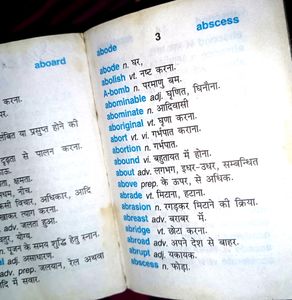 aboard
करना.
लंबित या प्रसुप्त होने की
दृढ़ता से पालन करना.
क्षमता.
नीच.
विचार, अधिकार, आदि
त्याग करना.
adv. जलता हुआ.
योग्य.
n. पूजन के समय शुद्धि हेतु स्नान.
adj. असाधारण.
adv. prep. जलयान, रेल अथवा
में सवार.
abode 3 abscess
abode n. घर,
abolish vt. नष्ट करना.
A-bomb n. परमाणु बम.
abominable adj. घृणित, घिनौना.
abominate n. आदिवासी
aboriginal vt. घृणा करना.
abort vt. vi. गर्भपात कराना.
abortion n. गर्भपात.
abound vi. बहुतायत में होना.
about adv. लगभग, इधर-उधर, सम्बन्धित
above prep. के ऊपर, से अधिक.
abrade vt. मिटाना, हटाना.
abrasion n. रगड़कर मिटाने की क्रिया.
abreast adv. बराबर में.
abridge vt. छोटा करना.
abroad adv. अपने देश से बाहर.
abrupt adj. यकायक.
abscess n. फोड़ा.